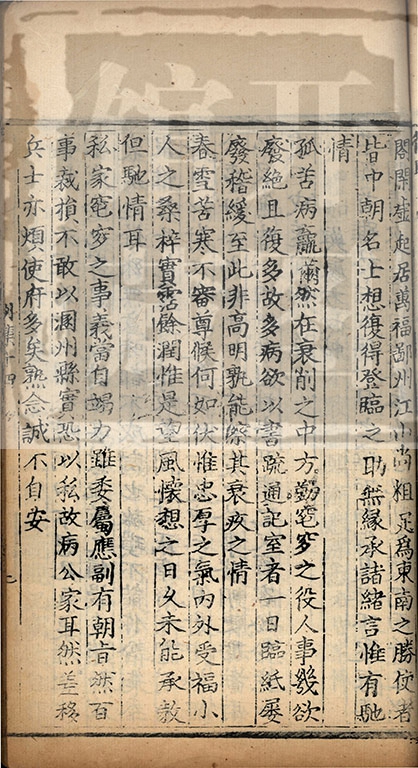 閤閑虛起居萬福鄙州江山尚粗足爲東南之勝使者
皆中朝名士想復得登臨之助無緣承諸緒言惟有馳
情
孤苦病羸薾然在衰削之中方勤窀穸之役人事幾欲
廢絕且復多故多病欲以書䟽通記室者一日臨紙屢
廢稽緩至此非高明孰能察其衰疚之情
春雪苦寒不審尊候何如伏惟忠厚之氣内外受福小
人之桑梓實霑餘潤惟是望風懷想之日乆未能承教
但馳情耳
私家窀穸之事義當自竭力雖委屬應副有朝㫖然百
事裁損不敢以溷州縣實恐以私故病公家耳然差移
兵士亦煩使府多矣熟念誠不自安